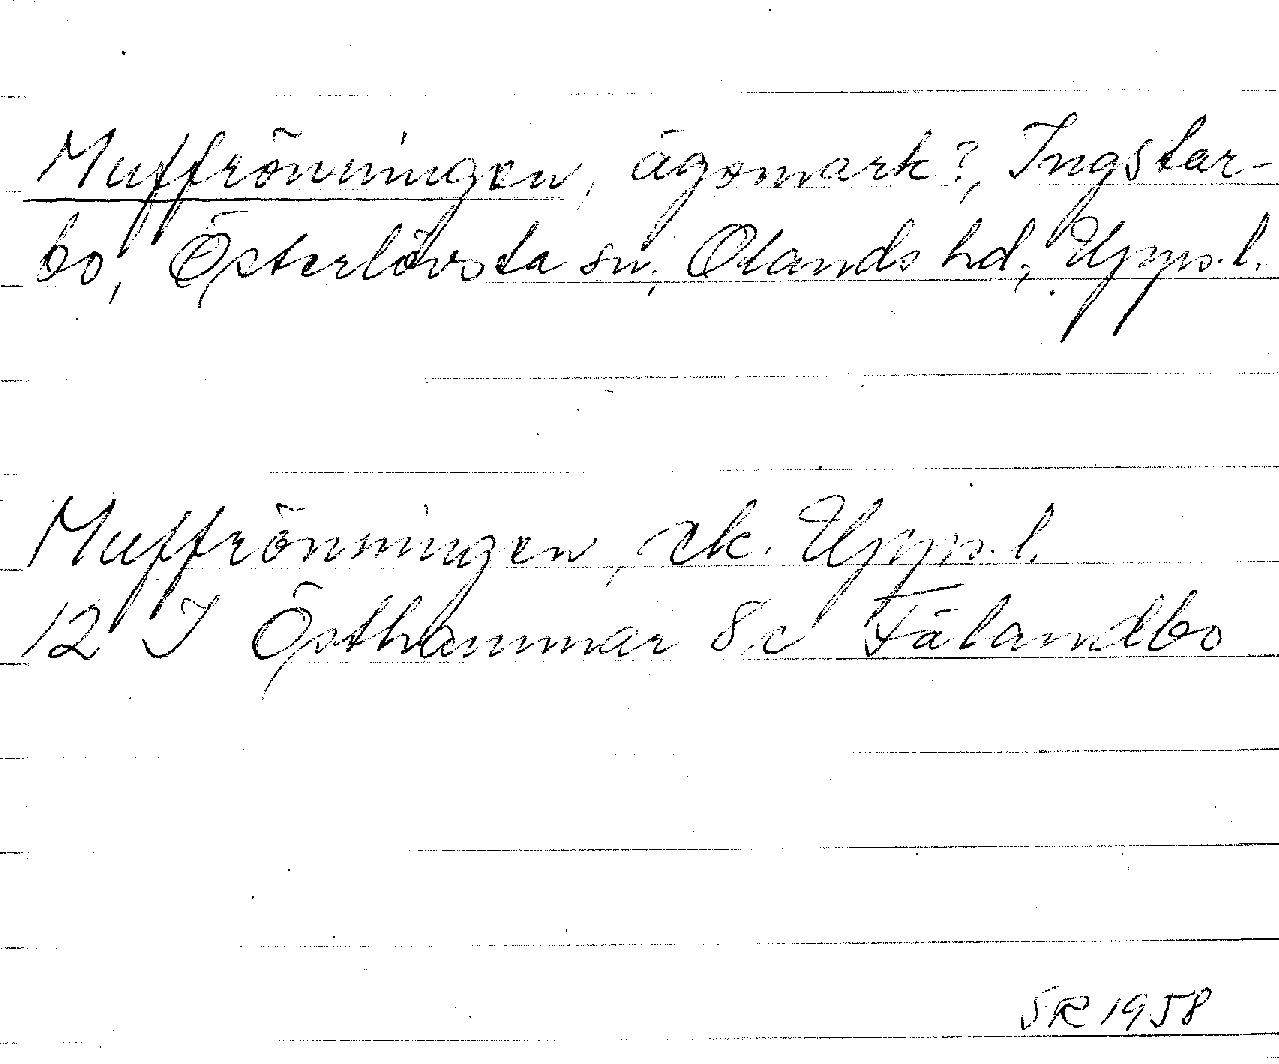 Muffrönningen, ägomark?, Ingstar-
bo, Österlövsta sn, Olands hd, Uppl.
Muffrönningen, ek. Uppl.
12 I Östhammar 8c Fälandbo
SR 1958